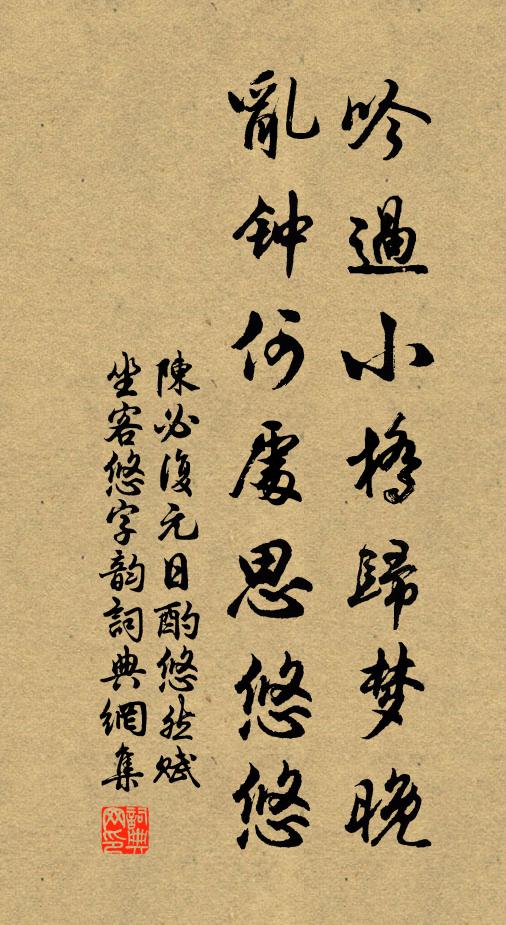 吟過小橋歸梦晚
亂钟何處思悠悠
陳必復元日酌悠然賦
坐客悠字韵詞典網集
詞典网印